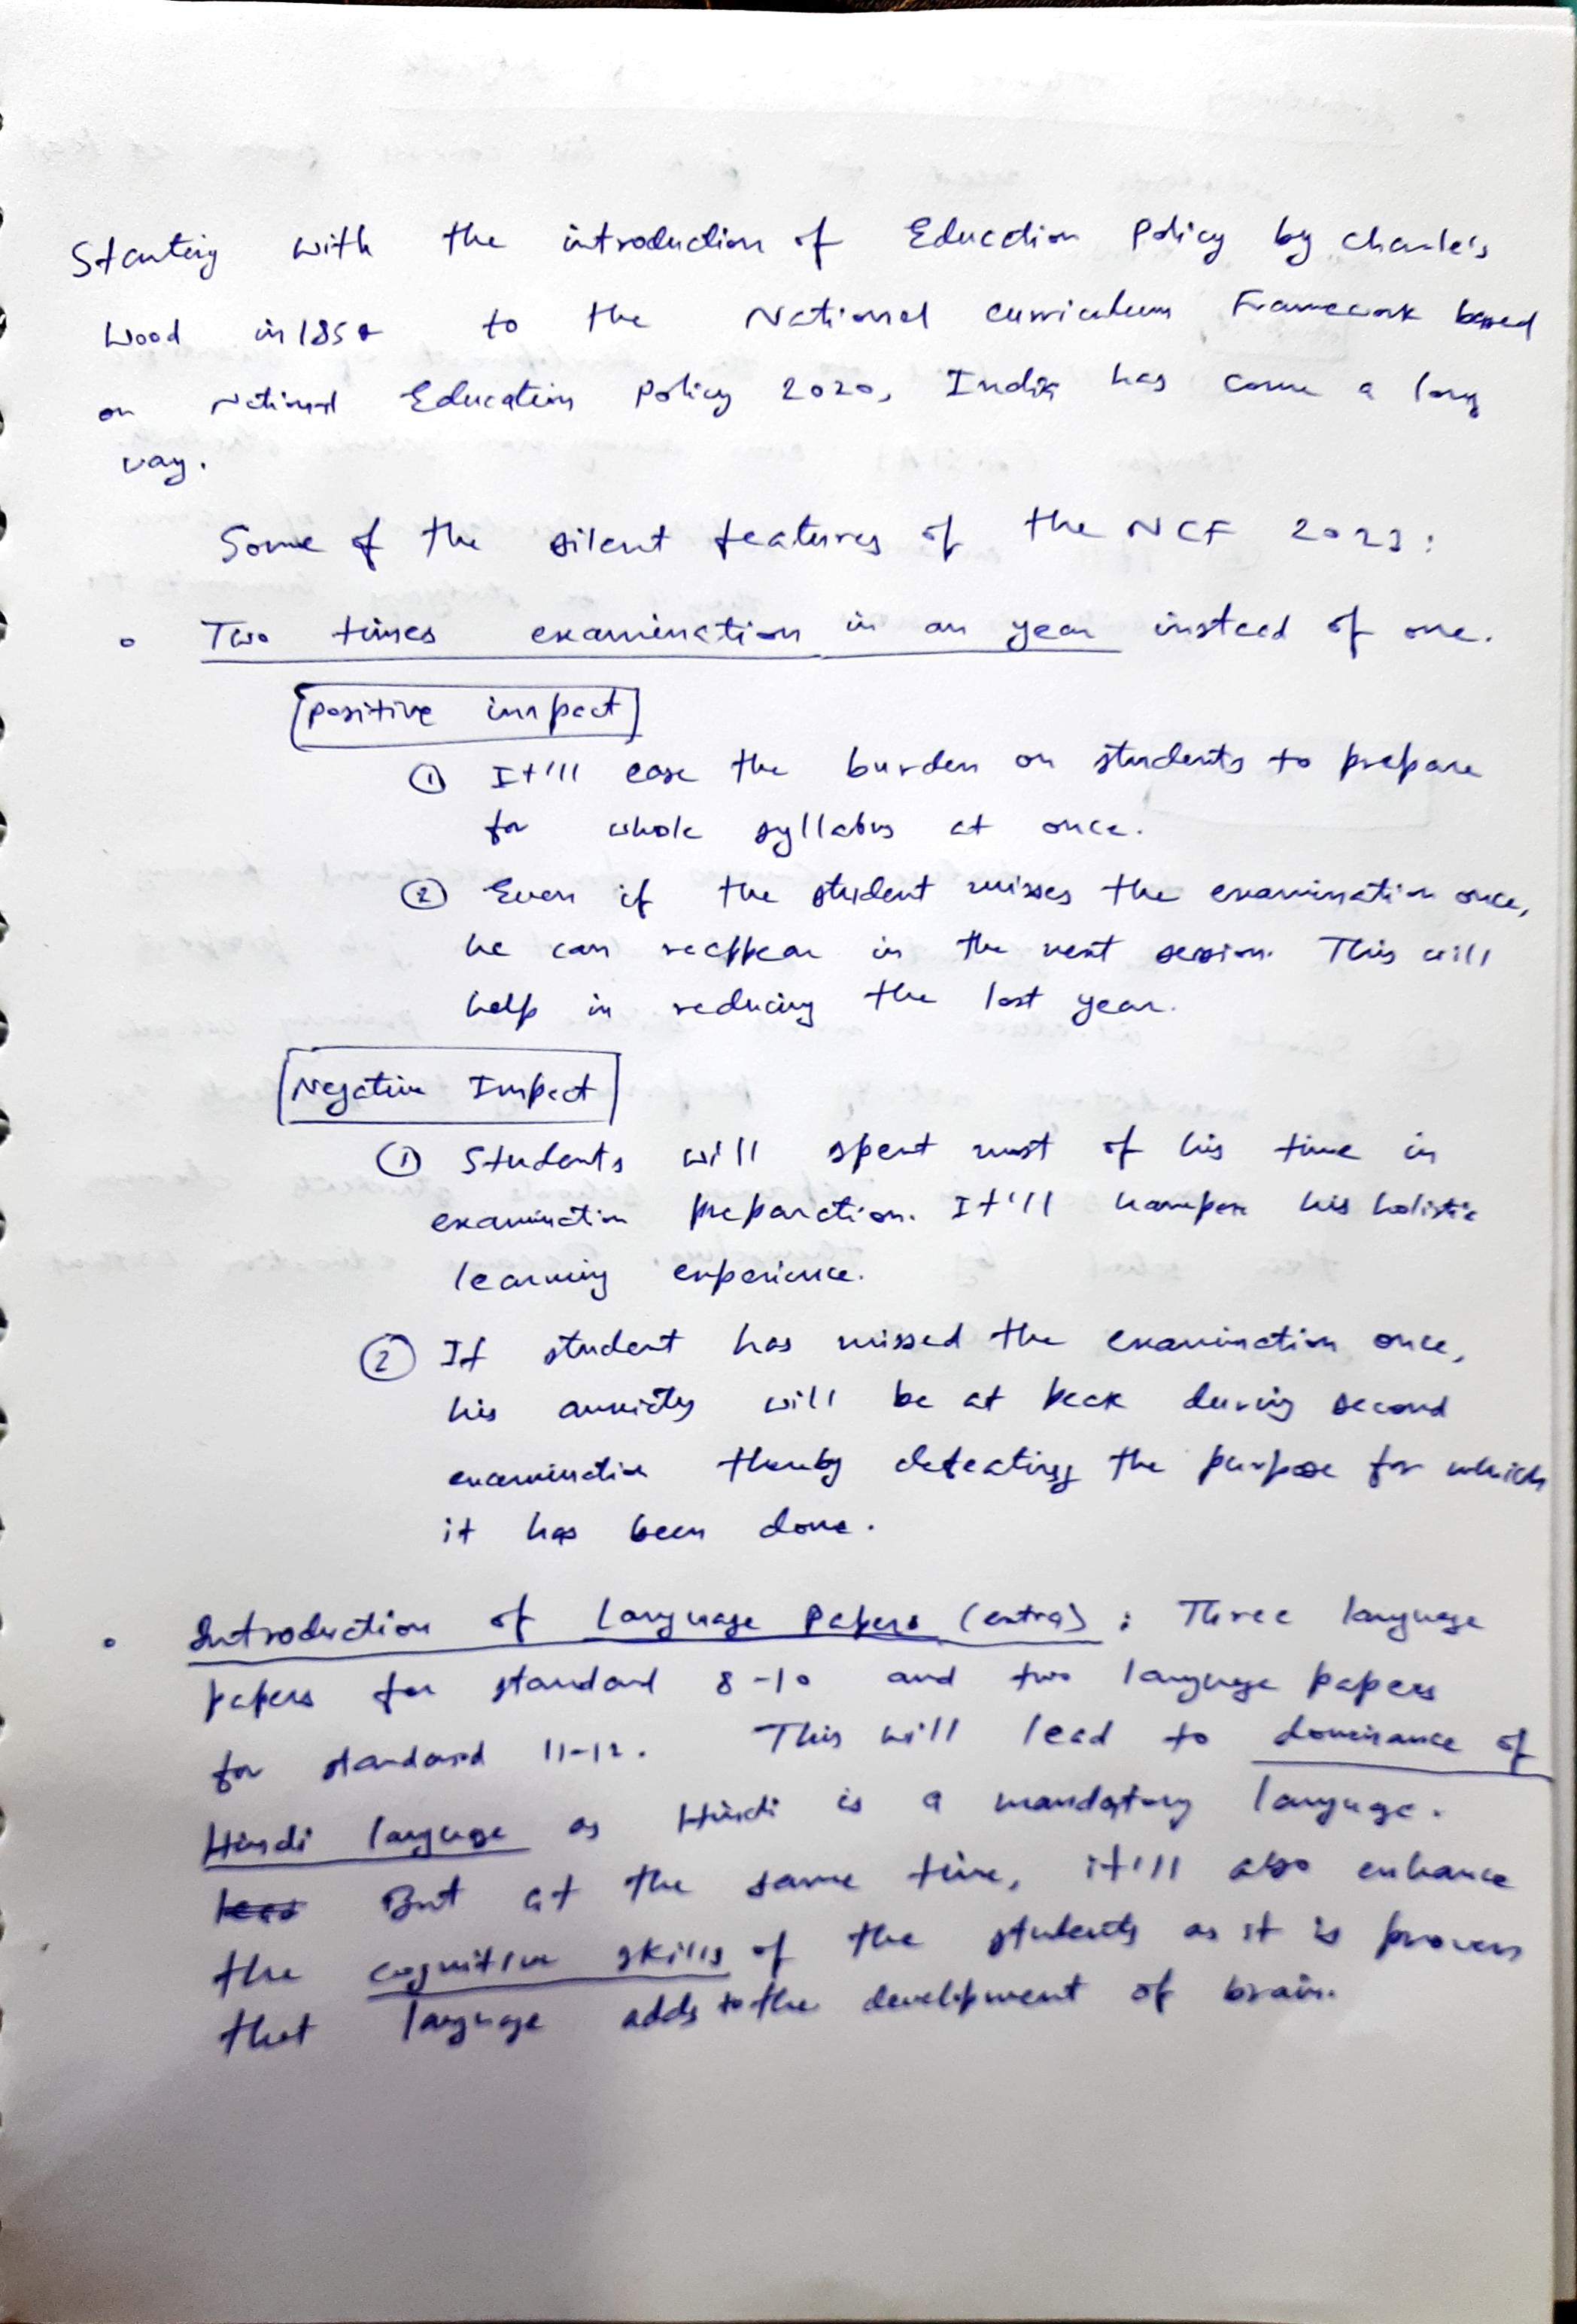 Starting with the introduction of Education Policy by Charle's
Wood in 1854 to the National curriculum Framework based
on National Education Policy 2020, India has come a long
way.
Some of the silent features of the NCF 2023:
Two times examination in an year instead of one.
Positive impact
① It'll ease the burden on students to prepare
for whole syllabus at once.
② Even if the student misses the examination once,
he can reappear in the next session. This will
help in reducing the lost year.
Negative Impact
① Students will spent most of his time in
examination preparation. It'll hamper his holistic
learning experience.
② If student has missed the examination once,
his anxiety will be at peak during second
examination thereby defeating the purpose for which
it has been done.
Introduction of Language Papers (extra): Three language
papers for standard 8-10 and two language papers
for standard 11-12. This will lead to dominance of
Hindi language as Hindi is a mandatory language.
But at the same time, it'll also enhance
the cognitive skills of the students as it is proven
that language adds to the development of brain.